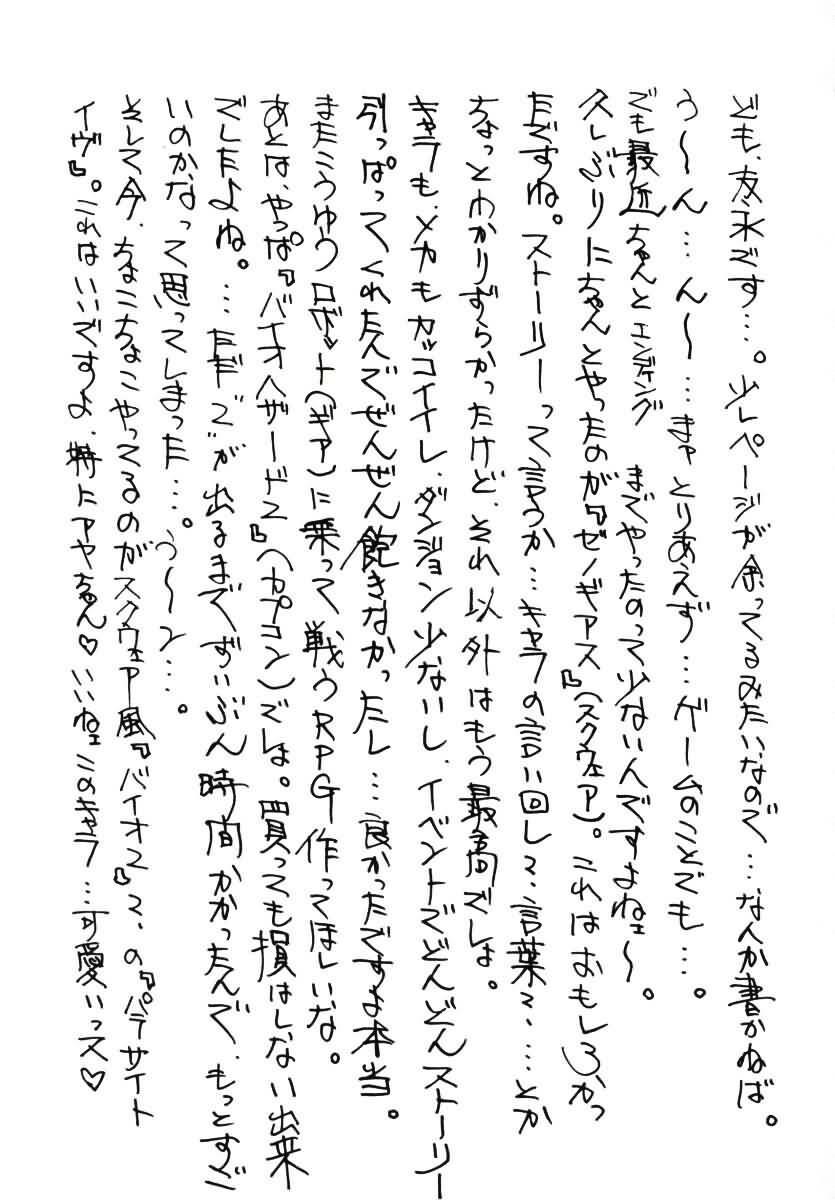 ども、友永です…。少しページが余ってるみたいなので…なんか書かねば。
う〜ん…ん〜…まァとりあえず…ゲームのことでも…。
でも最近ちゃんとエンディングまでやったのって少ないんですよねェ〜。
久しぶりにちゃんとやったのが『ゼノギアス』(スクウェア)。これはおもしろかっ
たですね。ストーリーって言うか…キャラの言い回しと、言葉と、…とか
ちょっとわかりずらかったけど、それ以外はもう最高でしょ。
キャラも、メカもカッコイイし、ダンジョン少ないし、イベントでどんどんストーリー
引っぱってくれたんでぜんぜん飽きなかったし…良かったですよ本当。
またこうゆうロボット(ギア)に乗って戦うRPG作ってほしいな。
あとは、やっぱ『バイオハザード2』(カプコン)でしょ。買っても損はしない出来
でしたよね。…ただ“2”が出るまでずいぶん時間かかったんで、もっとすご
いのかなって思ってしまった…。う〜ン…。
そして今、ちょこちょこやってるのがスクウェア風『バイオ2』と、の『パラサイト
イヴ』。これはいいですよ、特にアヤちゃん♡いいねェこのキャラ…可愛いっス♡